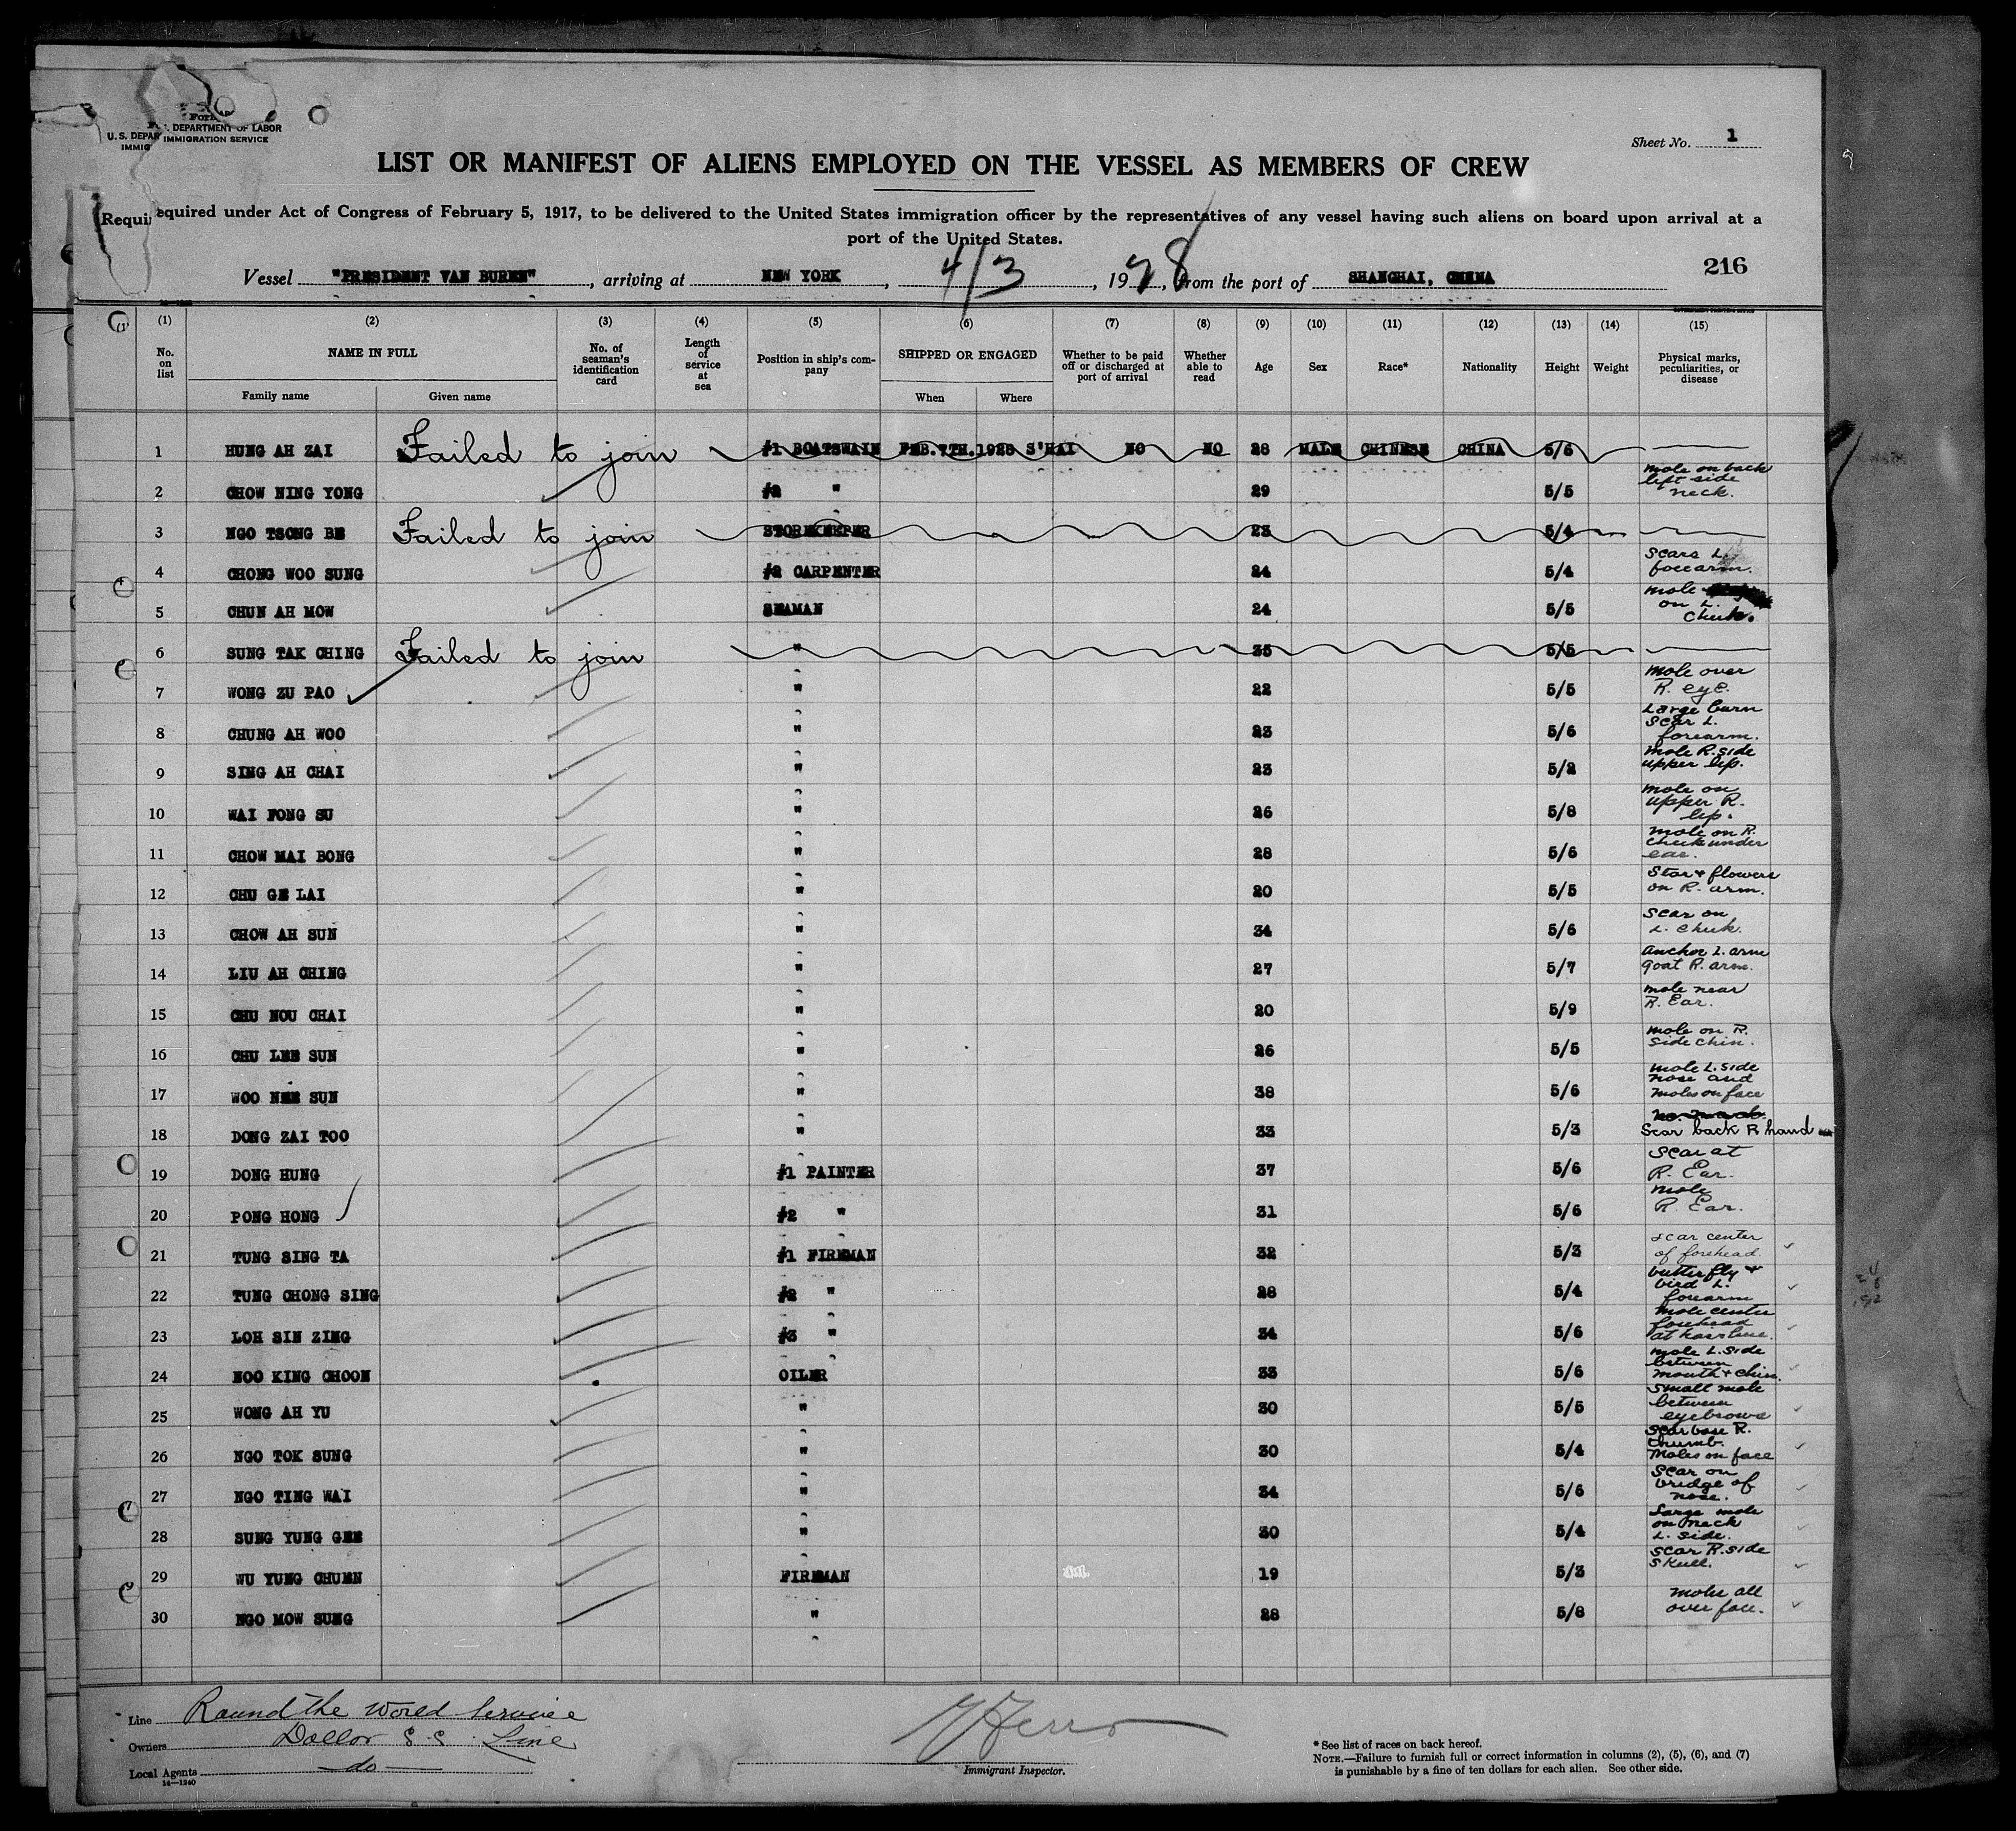 U.S. DEPARTMENT OF LABOR
IMMIGRATION SERVICE
Sheet No. 1
LIST OR MANIFEST OF ALIENS EMPLOYED ON THE VESSEL AS MEMBERS OF CREW
Required under Act of Congress of February 5, 1917, to be delivered to the United States immigration officer by the representatives of any vessel having such aliens on board upon arrival at a
port of the United States.
216
Vessel "PRESIDENT VAN BUREN", arriving at NEW YORK, 4/3, 1928, from the port of SHANGHAI, CHINA
(1) (2) (3) (4) (5) (6) (7) (8) (9) (10) (11) (12) (13) (14) (15)
No. on list NAME IN FULL Family name Given name No. of seaman's identification card Length of service at sea Position in ship's company SHIPPED OR ENGAGED When Where Whether to be paid off or discharged at port of arrival Whether able to read Age Sex Race* Nationality Height Weight Physical marks, peculiarities, or disease
1 HUNG AH ZAI Failed to join #1 BOATSWAIN FEB.7TH.1928 S'HAI NO NO 28 MALE CHINESE CHINA 5/6
2 CHOW NING YONG #2 " 29 5/5 mole on back left side neck.
3 NGO TSONG BE Failed to join STOREKEEPER 23 5/4
4 CHONG WOO SUNG #2 CARPENTER 24 5/4 Scars L. forearm.
5 CHUN AH MOW SEAMAN 24 5/5 mole on L. cheek.
6 SUNG TAK CHING Failed to join " 35 5/5
7 WONG ZU PAO " 22 5/5 mole over R. eye.
8 CHUNG AH WOO " 23 5/6 Large burn scar L. forearm.
9 SING AH CHAI " 23 5/2 mole R. side upper lip.
10 WAI FONG SU " 26 5/8 mole on upper R. lip.
11 CHOW MAI BONG " 28 5/6 mole on R. cheek under ear.
12 CHU GE LAI " 20 5/5 Star + flowers on R. arm.
13 CHOW AH SUN " 34 5/6 Scar on L. cheek.
14 LIU AH CHING " 27 5/7 anchor L. arm goat R. arm.
15 CHU NOU CHAI " 20 5/9 mole near R. Ear.
16 CHU LEE SUN " 26 5/5 mole on R. side chin.
17 WOO NEE SUN " 38 5/6 mole L. side nose and moles on face
18 DONG ZAI TOO " 33 5/3 Scar back R hand
19 DONG HUNG #1 PAINTER 37 5/6 Scar at R. Ear.
20 PONG HONG #2 " 31 5/6 mole R. Ear.
21 TUNG SING TA #1 FIREMAN 32 5/3 scar center of forehead.
22 TUNG CHONG SING #2 " 28 5/4 butterfly + bird L. forearm
23 LOH SIN ZING #3 " 34 5/6 mole center forehead at hairline.
24 NOO KING CHOON OILER 33 5/6 mole L. side between mouth + chin.
25 WONG AH YU " 30 5/5 Small mole between eyebrows
26 NGO TOK SUNG " 30 5/4 Scar base R. thumb. Moles on face
27 NGO TING WAI " 34 5/6 Scar on bridge of nose.
28 SUNG YUNG GEE " 30 5/4 Large mole on neck L. side.
29 WU YUNG CHUEN FIREMAN 19 5/3 Scar R. side Skull.
30 NGO MOW SUNG " 28 5/8 moles all over face.
Line Round the World Service
Owners Dollar S.S. Line
Local Agents do
14—1240
Immigrant Inspector.
* See list of races on back hereof.
NOTE.—Failure to furnish full or correct information in columns (2), (5), (6), and (7)
is punishable by a fine of ten dollars for each alien. See other side.